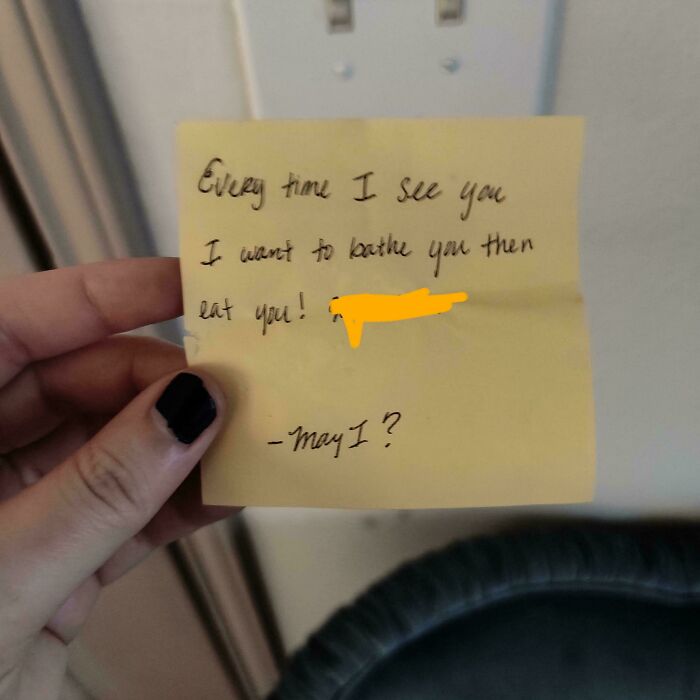 Every time I see you
I want to bathe you then
eat you!
- May I?